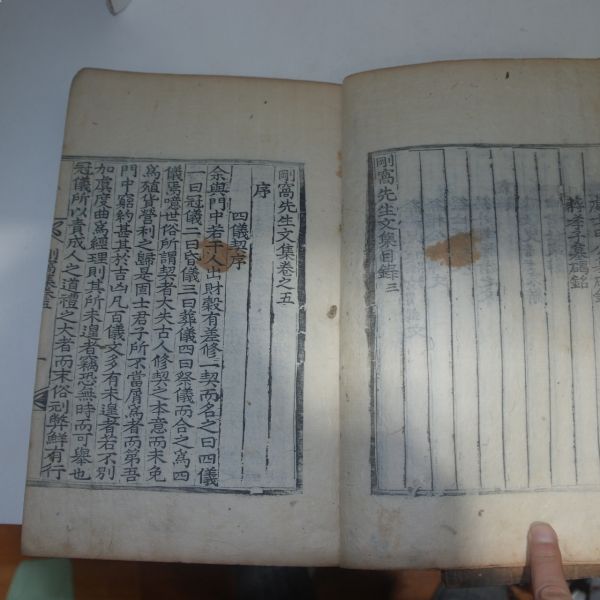 裵孝子墓碣銘
剛窩先生文集目錄三
剛窩先生文集卷之五
序
四儀契序
余與門中若干人出財穀有差修一契而名之曰四儀
一曰冠儀二曰昏儀三曰葬儀四曰祭儀而合之爲四
儀焉噫世俗所謂契者大失古人修契之本意而未免
爲殖貨營利之歸是固士君子所不當屑爲者而第吾
門中窮約甚其於吉凶凡百儀文多有未遑者若不別
加寘度曲爲經理則其所未遑者竊恐無時而可擧也
冠儀所以責成人之道禮之大者而末俗刓弊鮮有行